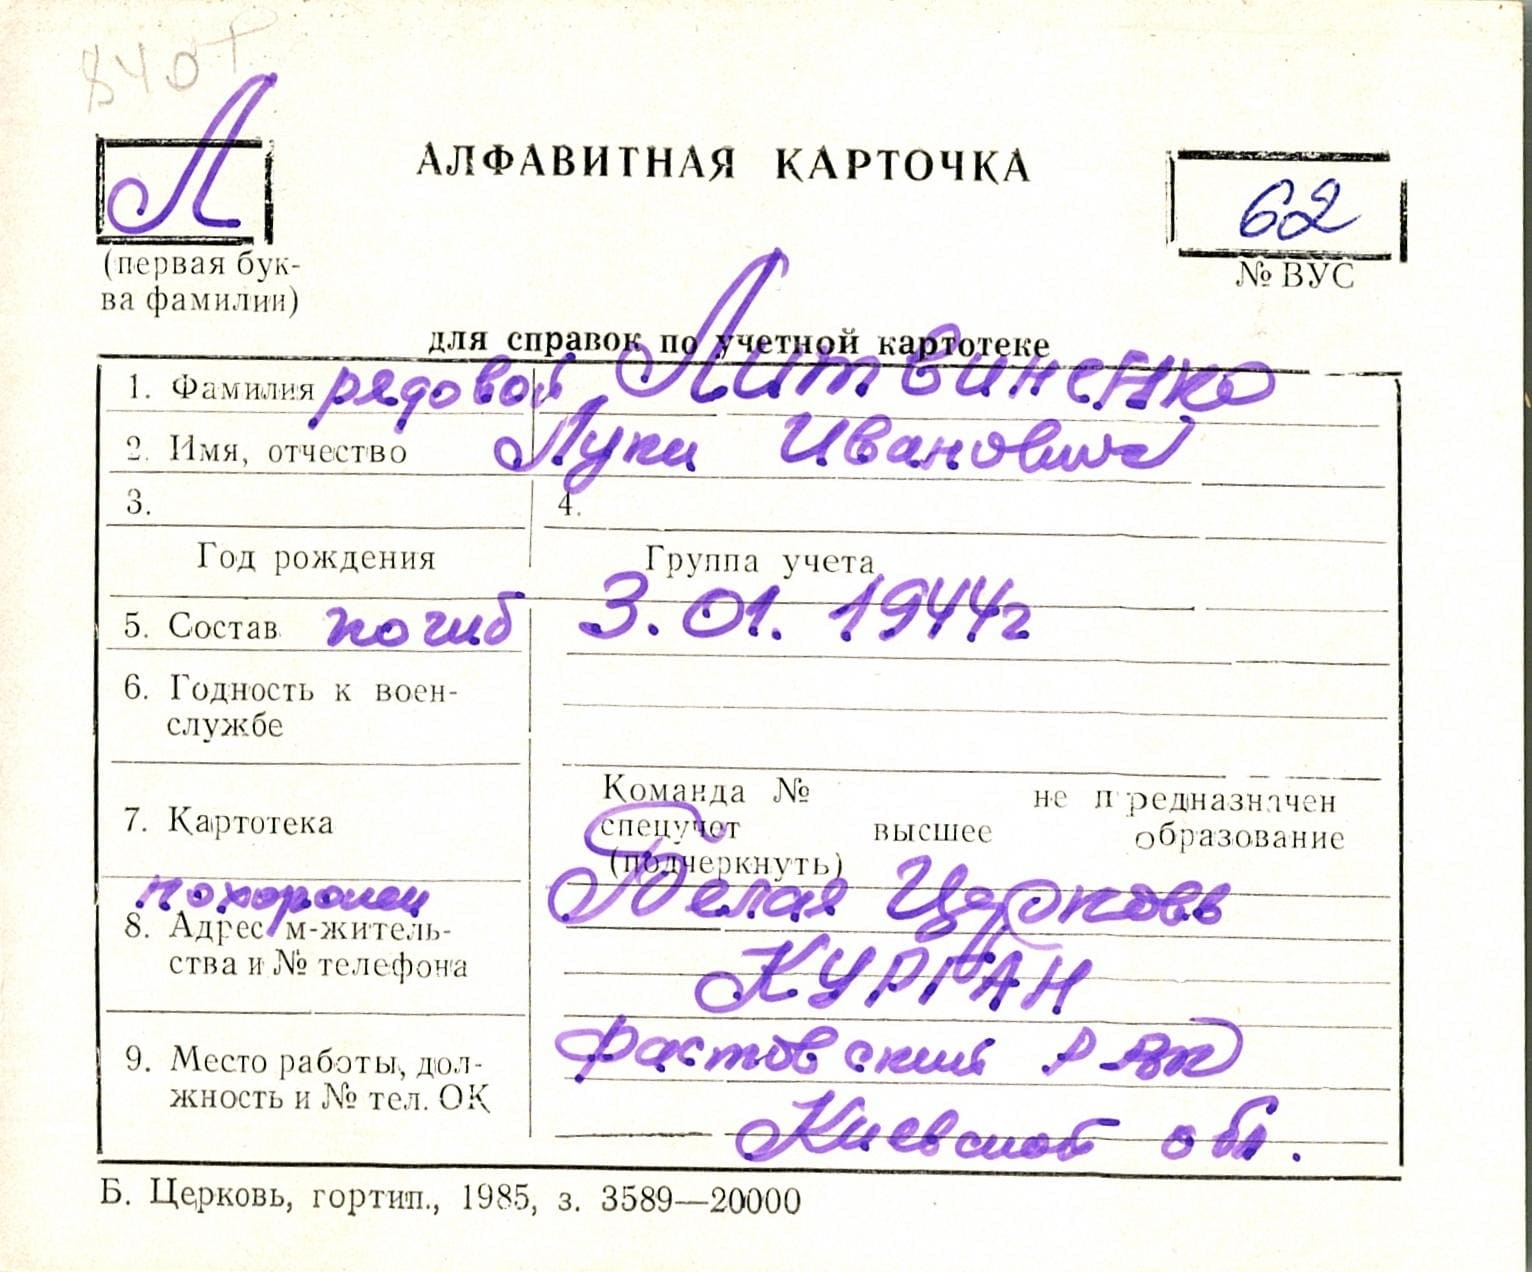 840т
Л
АЛФАВИТНАЯ КАРТОЧКА
62
(первая бук-
ва фамилии)
№ ВУС
для справок по учетной картотеке
1. Фамилия рядовой Литвиненко
2. Имя, отчество Лука Иванович
3.
4.
Год рождения
Группа учета
5. Состав погиб 3.01.1944г
6. Годность к воен-
службе
7. Картотека
Команда № не предназначен
спецучет высшее образование
(подчеркнуть)
похоронен Белая Церковь
8. Адрес м-житель-
ства и № телефона
КУРГАН
9. Место работы, дол-
жность и № тел. ОК
Фастовский РВК
Киевской обл.
Б. Церковь, гортип., 1985, з. 3589—20000